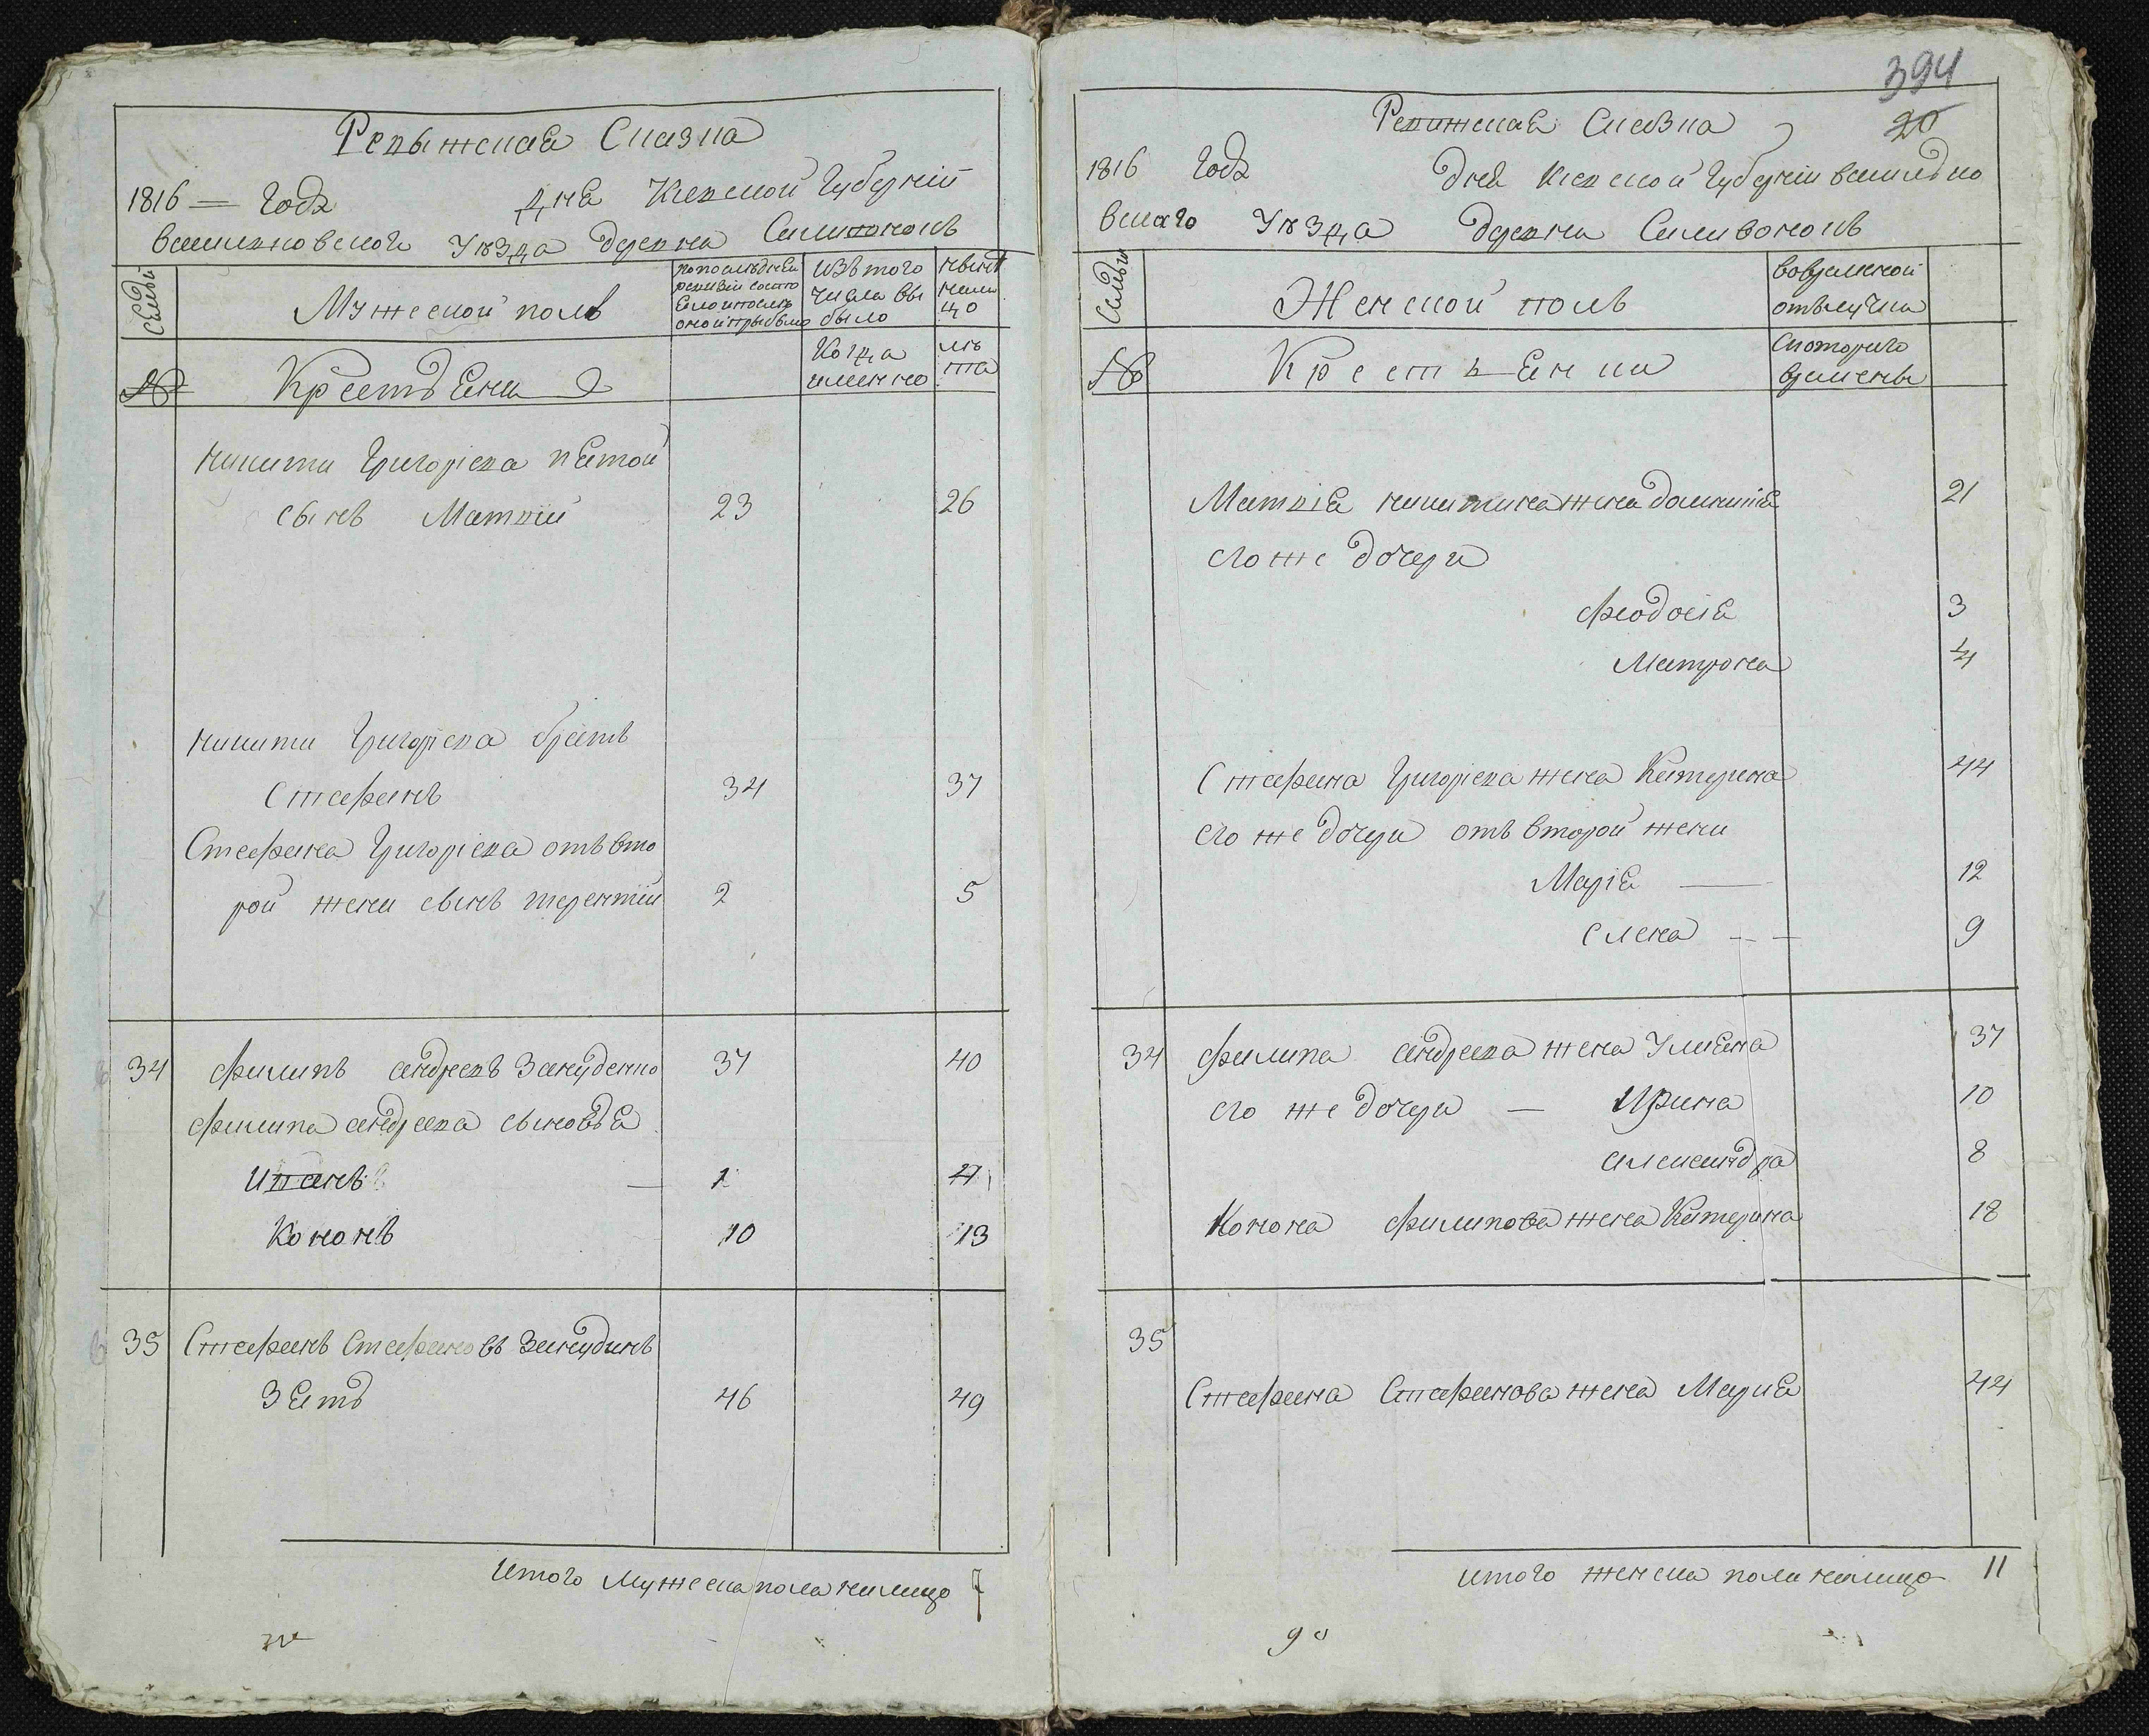 Ревыжская Сказка
1816 — годa дня Киевской губерніи
васильковского уѣзда деревни Силивонокъ
Семьи
Мужеской полъ
по последнеи ревизіи состо ело и после оной прыбыло
Изъ того числа вы было
ныне на ли цо
№ Крестьяни
Когда именно
лѣ та
никити григоріева пятой
сынъ Матвій 23 26
никити григоріева братъ
Стефанъ 34 37
Стефана григоріева отъ вто
рой жени сынъ терентій 2 5
34 филипъ андреевъ Зануденко 37 40
филипа андреева сыновья
Иванъ — 1 4
Кононъ 10 13
35 Стефанъ Стефановъ Занудинъ
Зять 46 49
Итого Мужеска пола налицо 7
394
20
Ревижская Сказка
1816 года дня Киевской губерніи василько
вскаго уѣзда деревни Силивонокъ
Семьи
Женской полъ
вовременой отълучки
№ Крестьянки
Скоторого времены
Матвія никитина жена домникія 21
его же дочери
феодосія 3
Матрона 4
Стефана григоріева жена Катерина 44
его же дочери отъ второй жени
Марія — 12
елена - - 9
34 филипа андреева жена Улияна 37
его же дочери — Ирина 10
александра 8
Конона филипова жена Катерина 18
35
Стефана Стефанова жена Мария 44
итого женска пола налицо 11
90